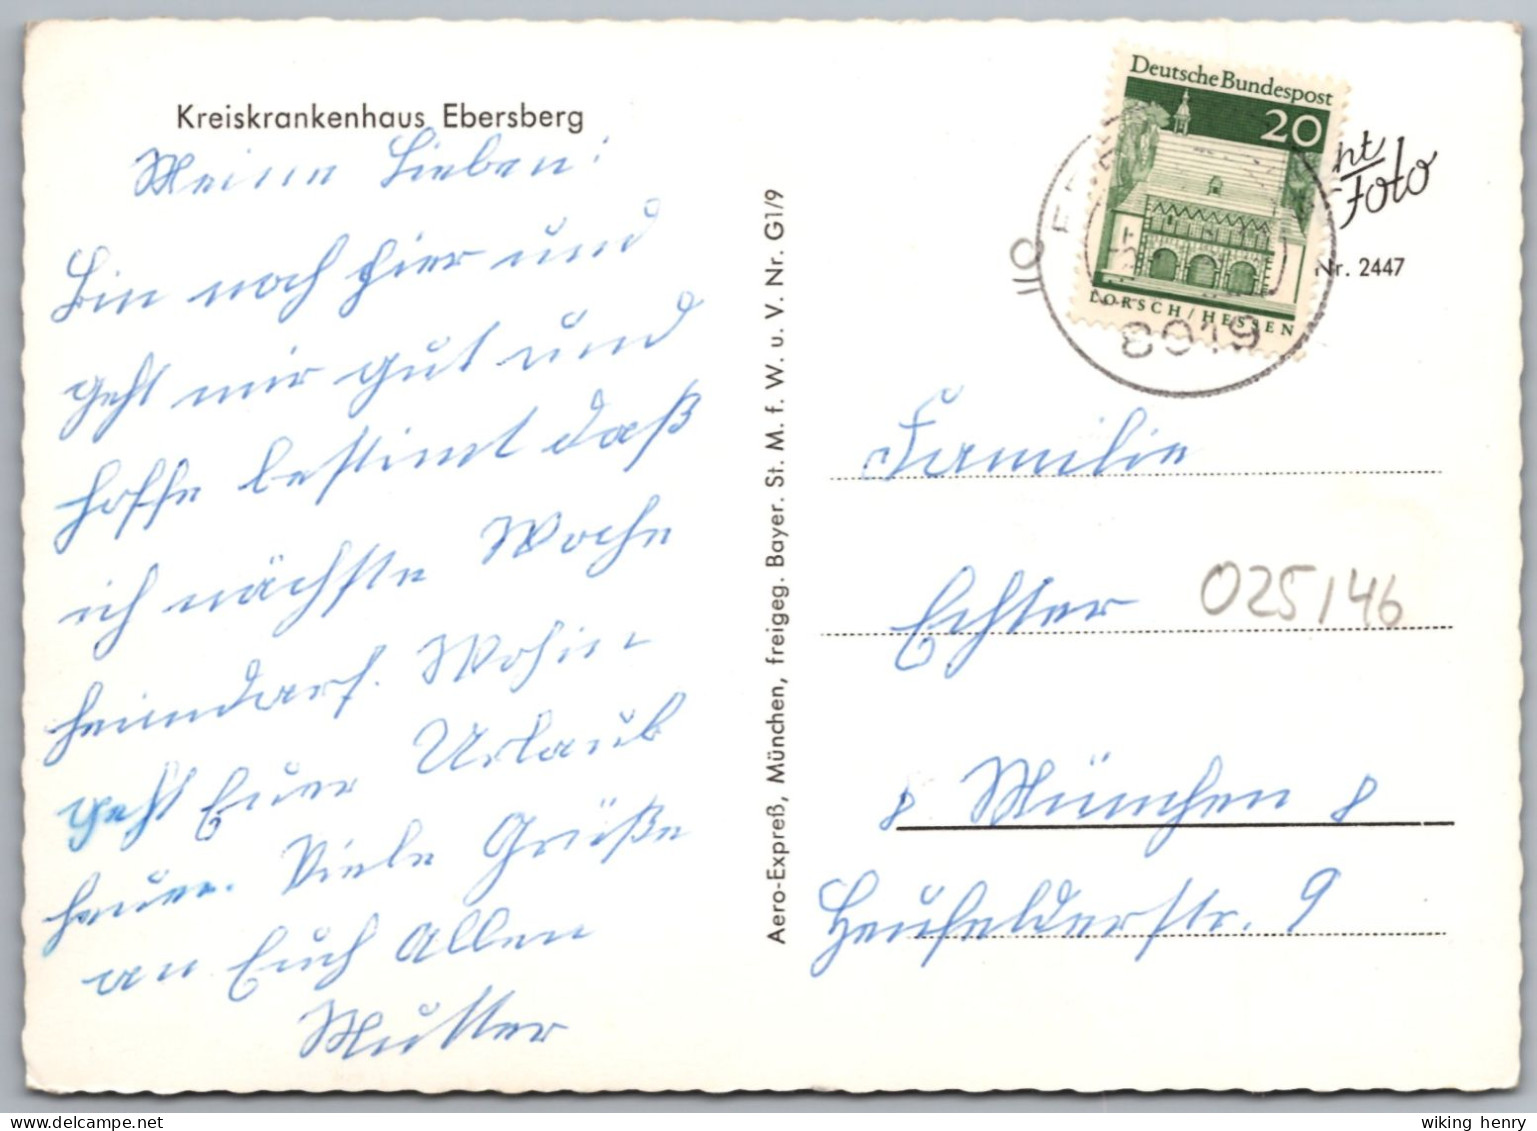 Kreiskrankenhaus Ebersberg
Meine Lieben!
Bin noch hier und
geht mir gut und
hoffe bestimt daß
ich nächste Woche
heimdarf. Wohin
geht Euer Urlaub
heuer. Viele Grüße
an Euch Allen
Mutter
Aero-Expreß, München, freigeg. Bayer. St. M. f. W. u. V. Nr. G1/9
Deutsche Bundespost
20
LORSCH/HESSEN
8019
ht
Foto
Nr. 2447
Familie
Echter
025/46
8 München 8
Heufelderstr. 9
wiking henry